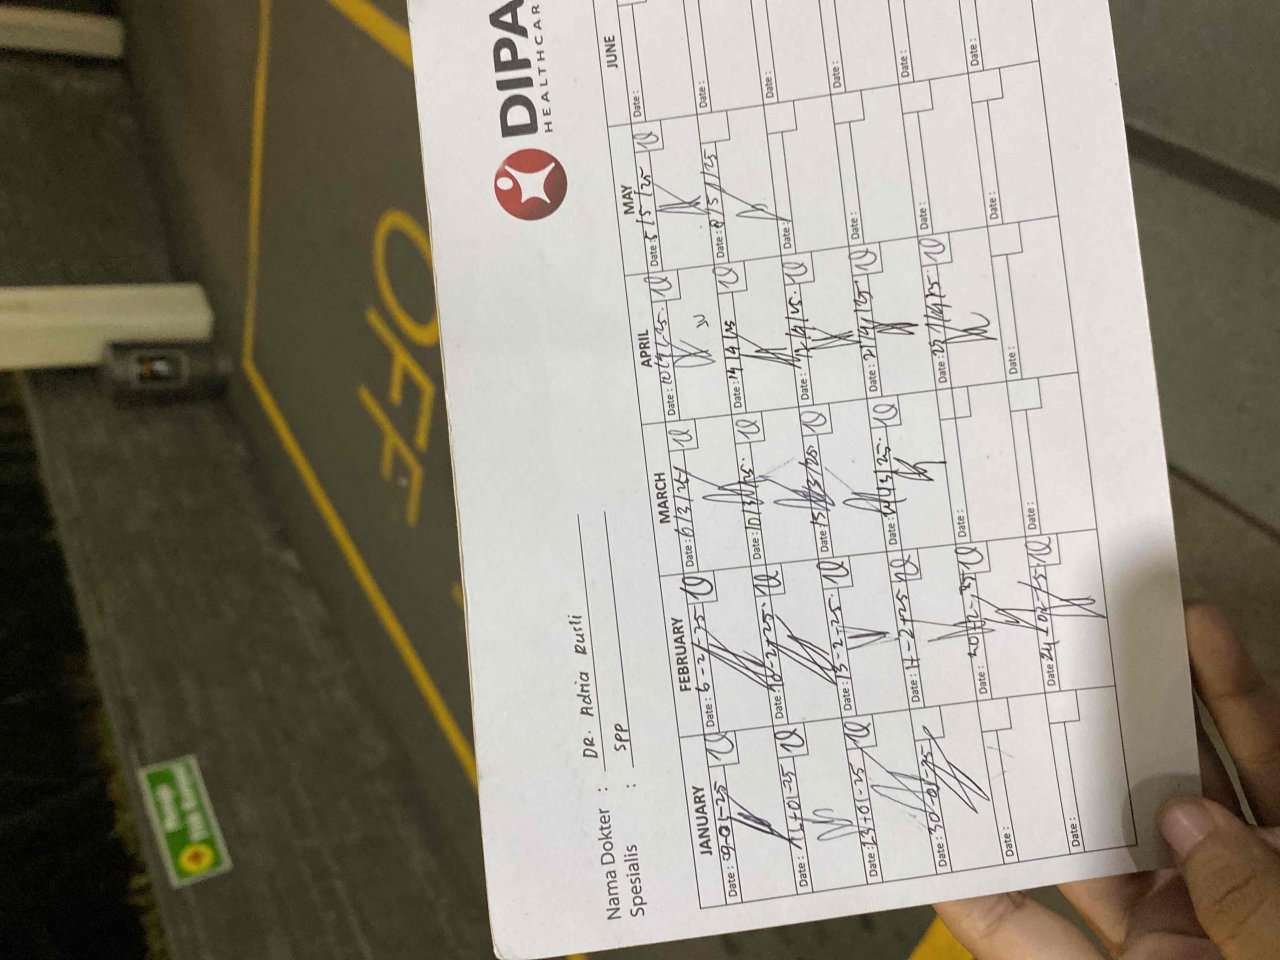 DIPA
HEALTHCAR
Nama Dokter : DR. Adria Rusli
Spesialis : SPP
JANUARY FEBRUARY MARCH APRIL MAY JUNE
Date : 9-01-25 Date : 6-2-25 Date : 6/3/25 Date : 10/4/25. Date : 5/5/25 Date :
Date : Date : 10-2-25. Date : 10/3/25. Date : 14/4/25 Date : 8/5/25 Date :
Date : 23-01-25 Date : 13-2-25. Date : 13/3/25 Date : 17/4/25. Date : Date :
Date : 30-01-25 Date : 17-2-25 Date : Date : 21/4/25 Date : Date :
Date : Date : Date : Date : Date : Date :
Date : Date : 24-02-25. Date : Date : Date : Date :
OFF